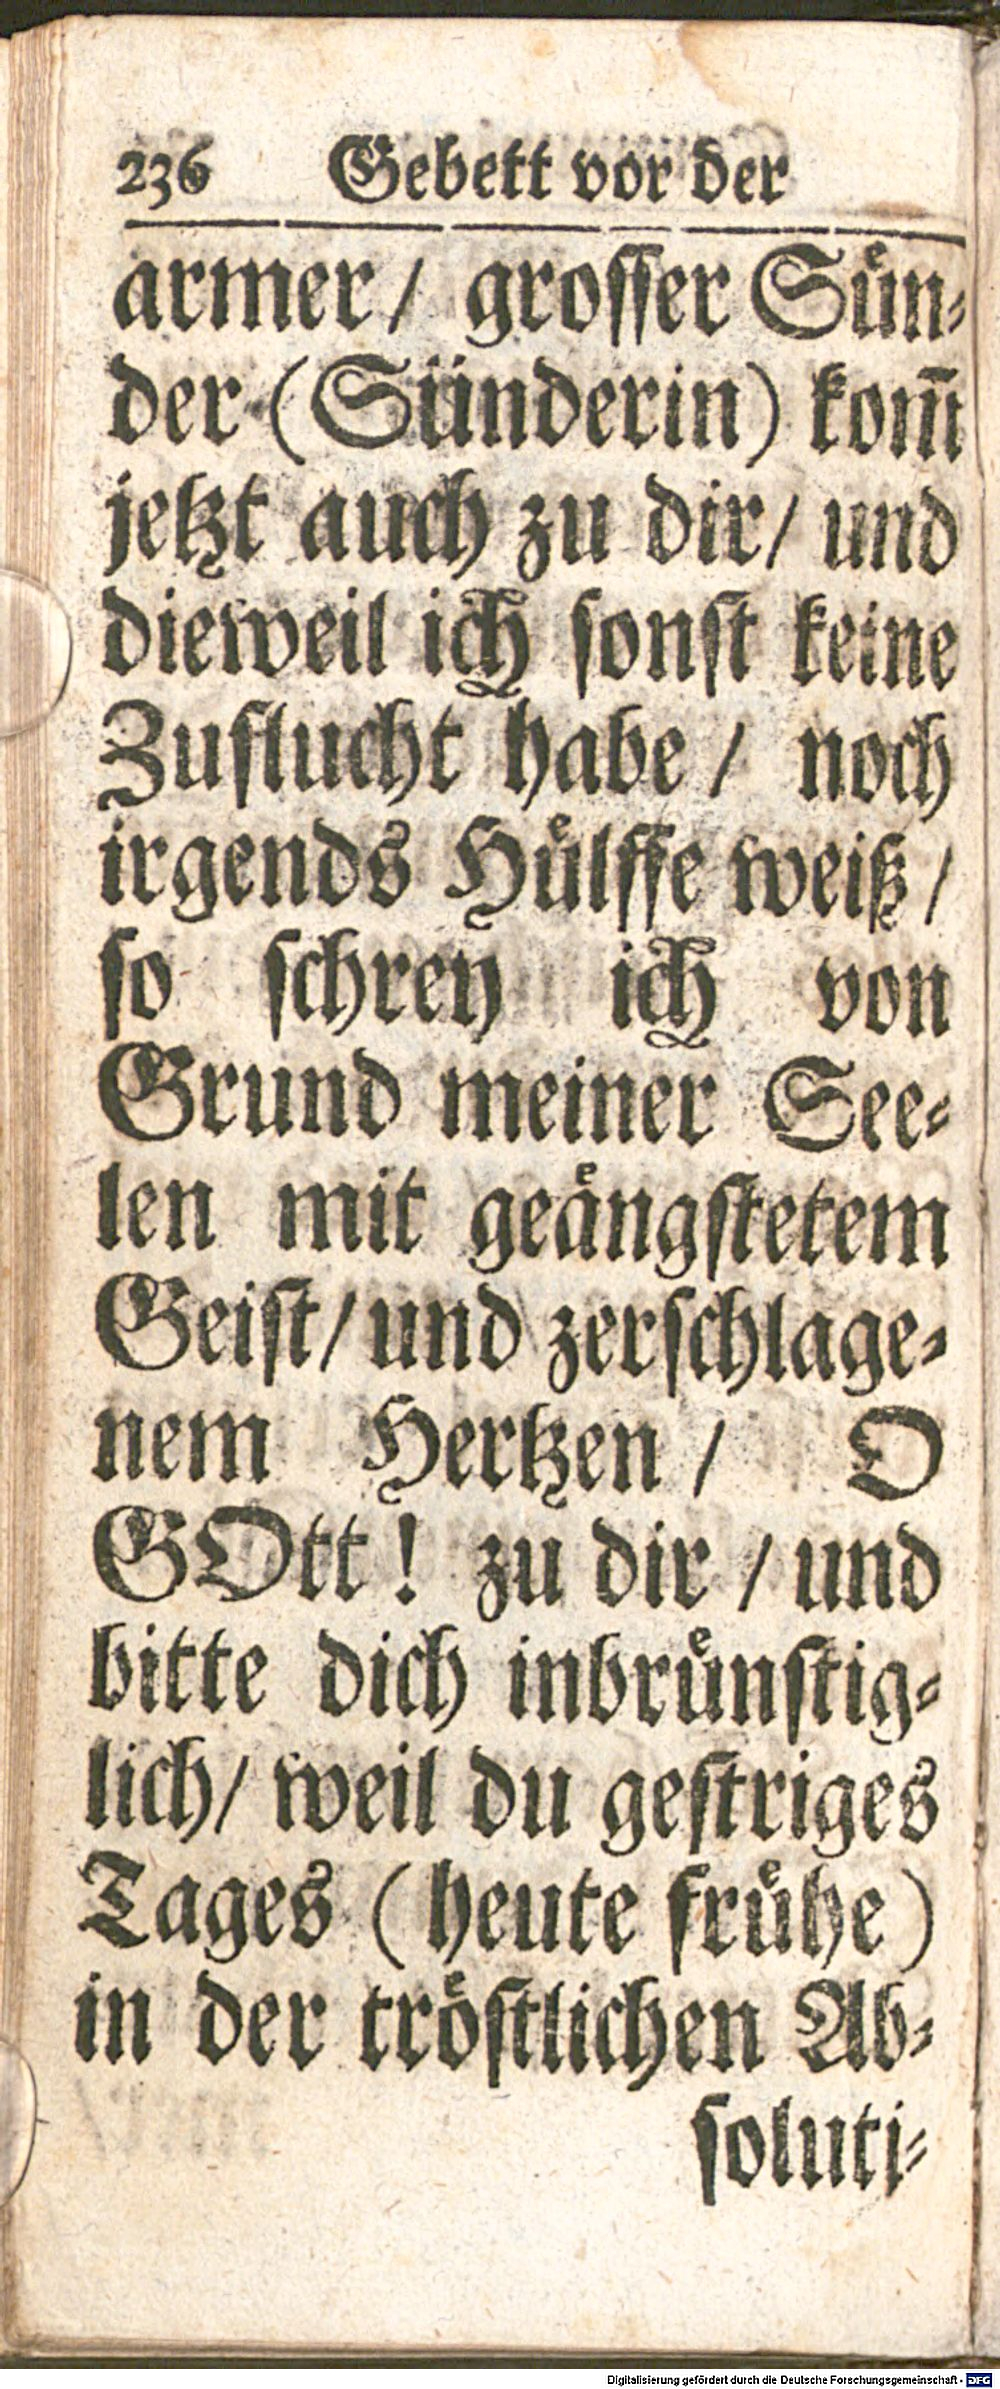 236 Gebett vor der
armer / grosser Sůn-
der (Sünderin) kom̅
jetzt auch zu dir / und
dieweil ich sonst keine
Zuflucht habe / noch
irgends Hůlffe weiß /
so schrey ich von
Grund meiner See-
len mit geaͤngstetem
Geist / und zerschlage-
nem Hertzen / O
GOtt! zu dir / und
bitte dich inbrůnstig-
lich / weil du gestriges
Tages (heute frůhe)
in der troͤstlichen Ab-
soluti-
Digitalisierung gefördert durch die Deutsche Forschungsgemeinschaft - DFG